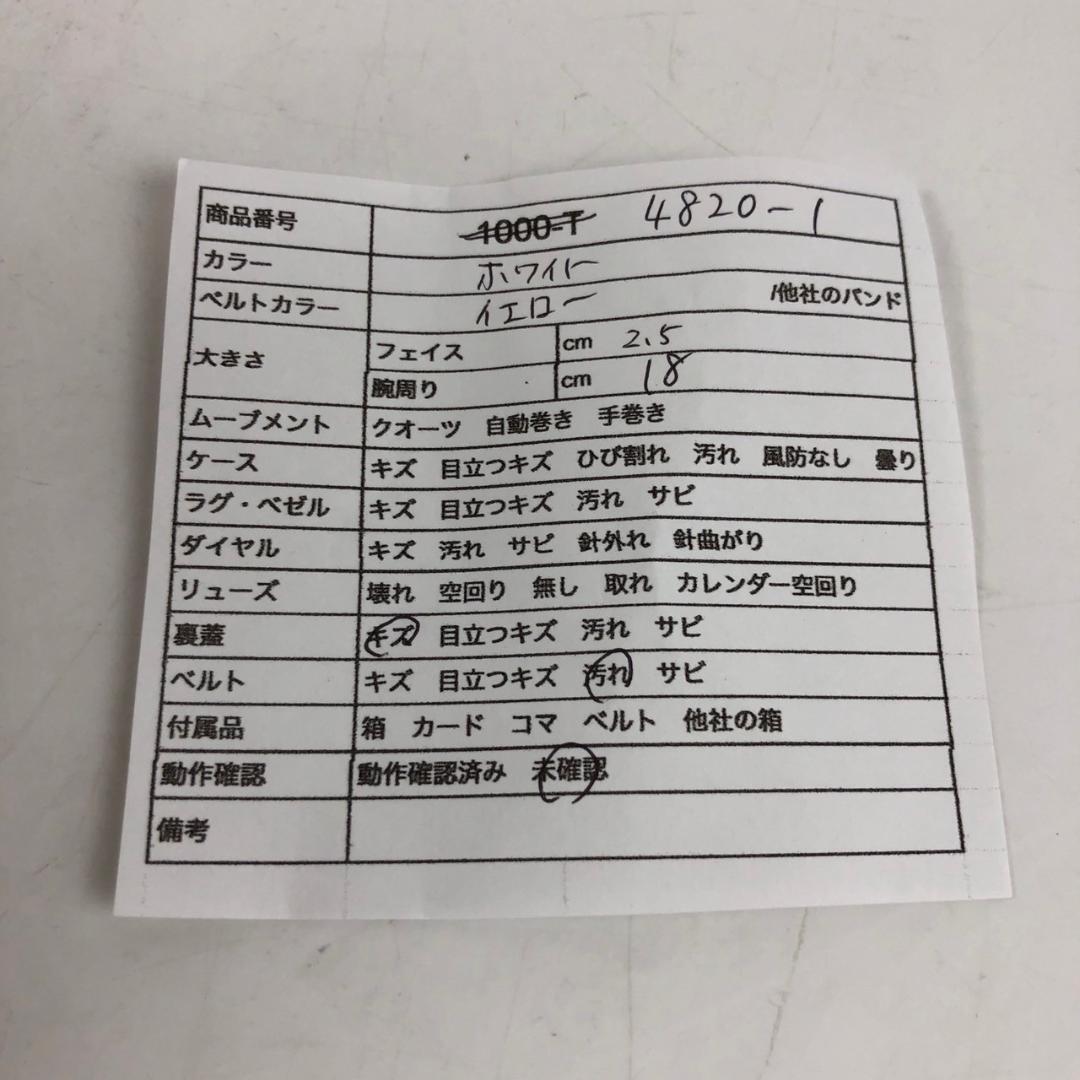 商品番号 1000-T 4820-1
カラー ホワイト
ベルトカラー イエロー /他社のバンド
大きさ フェイス cm 2.5
腕周り cm 18
ムーブメント クオーツ 自動巻き 手巻き
ケース キズ 目立つキズ ひび割れ 汚れ 風防なし 曇り
ラグ・ベゼル キズ 目立つキズ 汚れ サビ
ダイヤル キズ 汚れ サビ 針外れ 針曲がり
リューズ 壊れ 空回り 無し 取れ カレンダー空回り
裏蓋 キズ 目立つキズ 汚れ サビ
ベルト キズ 目立つキズ 汚れ サビ
付属品 箱 カード コマ ベルト 他社の箱
動作確認 動作確認済み 未確認
備考